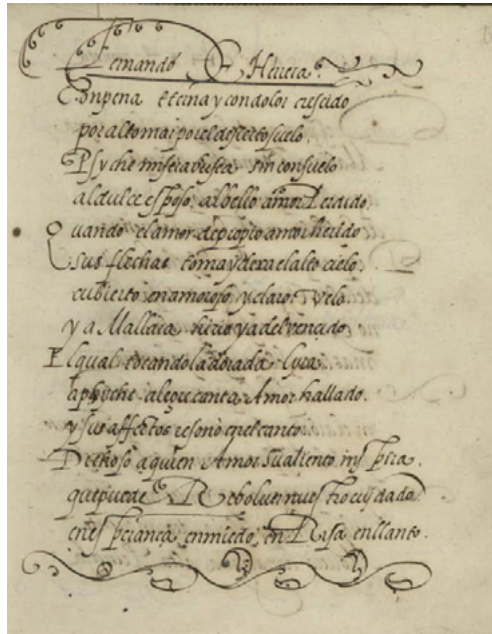 Fernando de Herrera.
Con pena eterna y con dolor crescido
por alto mar por el desierto suelo.
Psyche misera busca sin consuelo
al dulce esposo, al bello amor Perdido.
Quando el amor de propio amor herido
sus flechas toma y dexa el alto cielo.
cubierto en amoroso y claro Velo.
y a Mallara hirio y a del vencido.
El qual tocando la dorada Lyra.
a psyche alegre canta Amor hallado.
y sus affectos resono en el canto.
Dichoso a quien Amor su aliento inspira.
que puede Rebolver nuestro cuydado
en esperança, en miedo, en Risa en llanto.